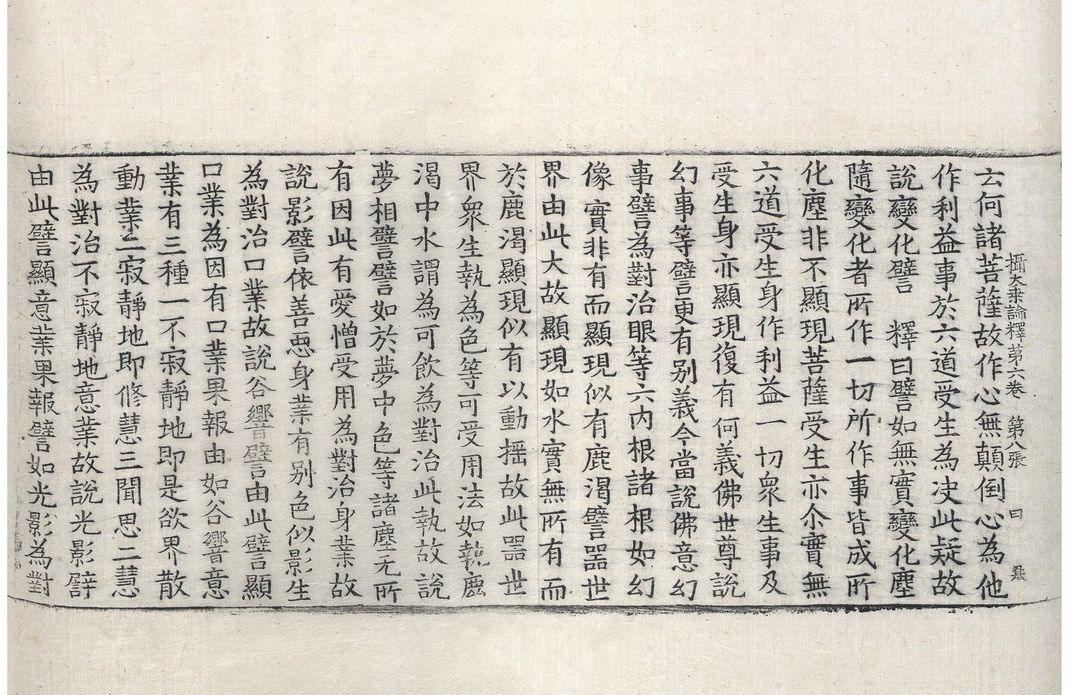 攝大乗論釋第六卷 第八張 曰
云何諸菩薩故作心無顛倒心為他
作利益事於六道受生為决此疑故
說變化譬 釋曰譬如無實變化塵
隨變化者所作一切所作事皆成所
化塵非不顯現菩薩受生亦尒實無
六道受生身作利益一切衆生事及
受生身亦顯現復有何義佛世尊說
幻事等譬更有别義今當說佛意幻
事譬為對治眼等六内根諸根如幻
像實非有而顯現似有鹿渴譬器世
界由此大故顯現如水實無所有而
於鹿渴顯現似有以動摇故此器世
界衆生執為色等可受用法如執塵
渴中水謂為可飲為對治此執故說
夢相譬譬如於夢中色等諸塵无所
有因此有愛憎受用為對治身業故
說影譬依善惡身業有别色似影生
為對治口業故說谷響譬由此譬顯
口業為因有口業果報由如谷響意
業有三種一不寂靜地即是欲界散
動業二寂靜地即修慧三聞思二慧
為對治不寂靜地意業故說光影譬
由此譬顯意業果報譬如光影為對